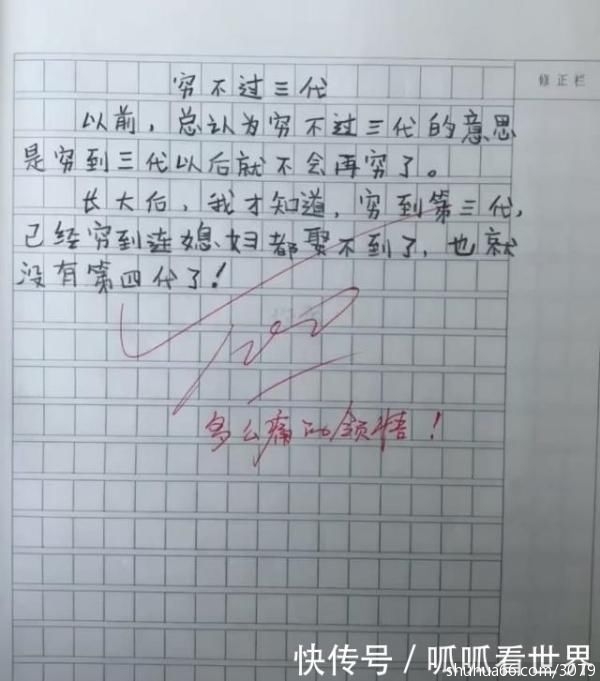 穷不过三代
修正栏
以前，总认为穷不过三代的意思
是穷到三代以后就不会再穷了。
长大后，我才知道，穷到第三代，
已经穷到连媳妇都娶不到了，也就
没有第四代了！
100
多么痛的领悟！
快传号／呱呱看世界
shuhua66.com/3079